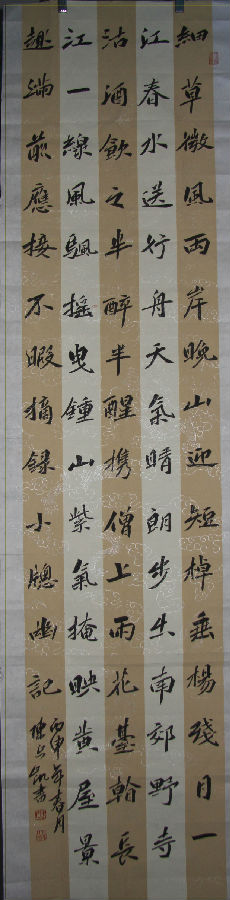 細草微風兩岸晚山迎短棹垂楊殘月一
江春水送行舟天氣晴朗步出南郊野寺
沽酒飲之半醉半醒携僧上雨花臺幹長
江一線風颿搖曳鍾山紫氣掩映黄屋景
趣滿前應接不暇摘録小牕幽記
丙申年春月
書